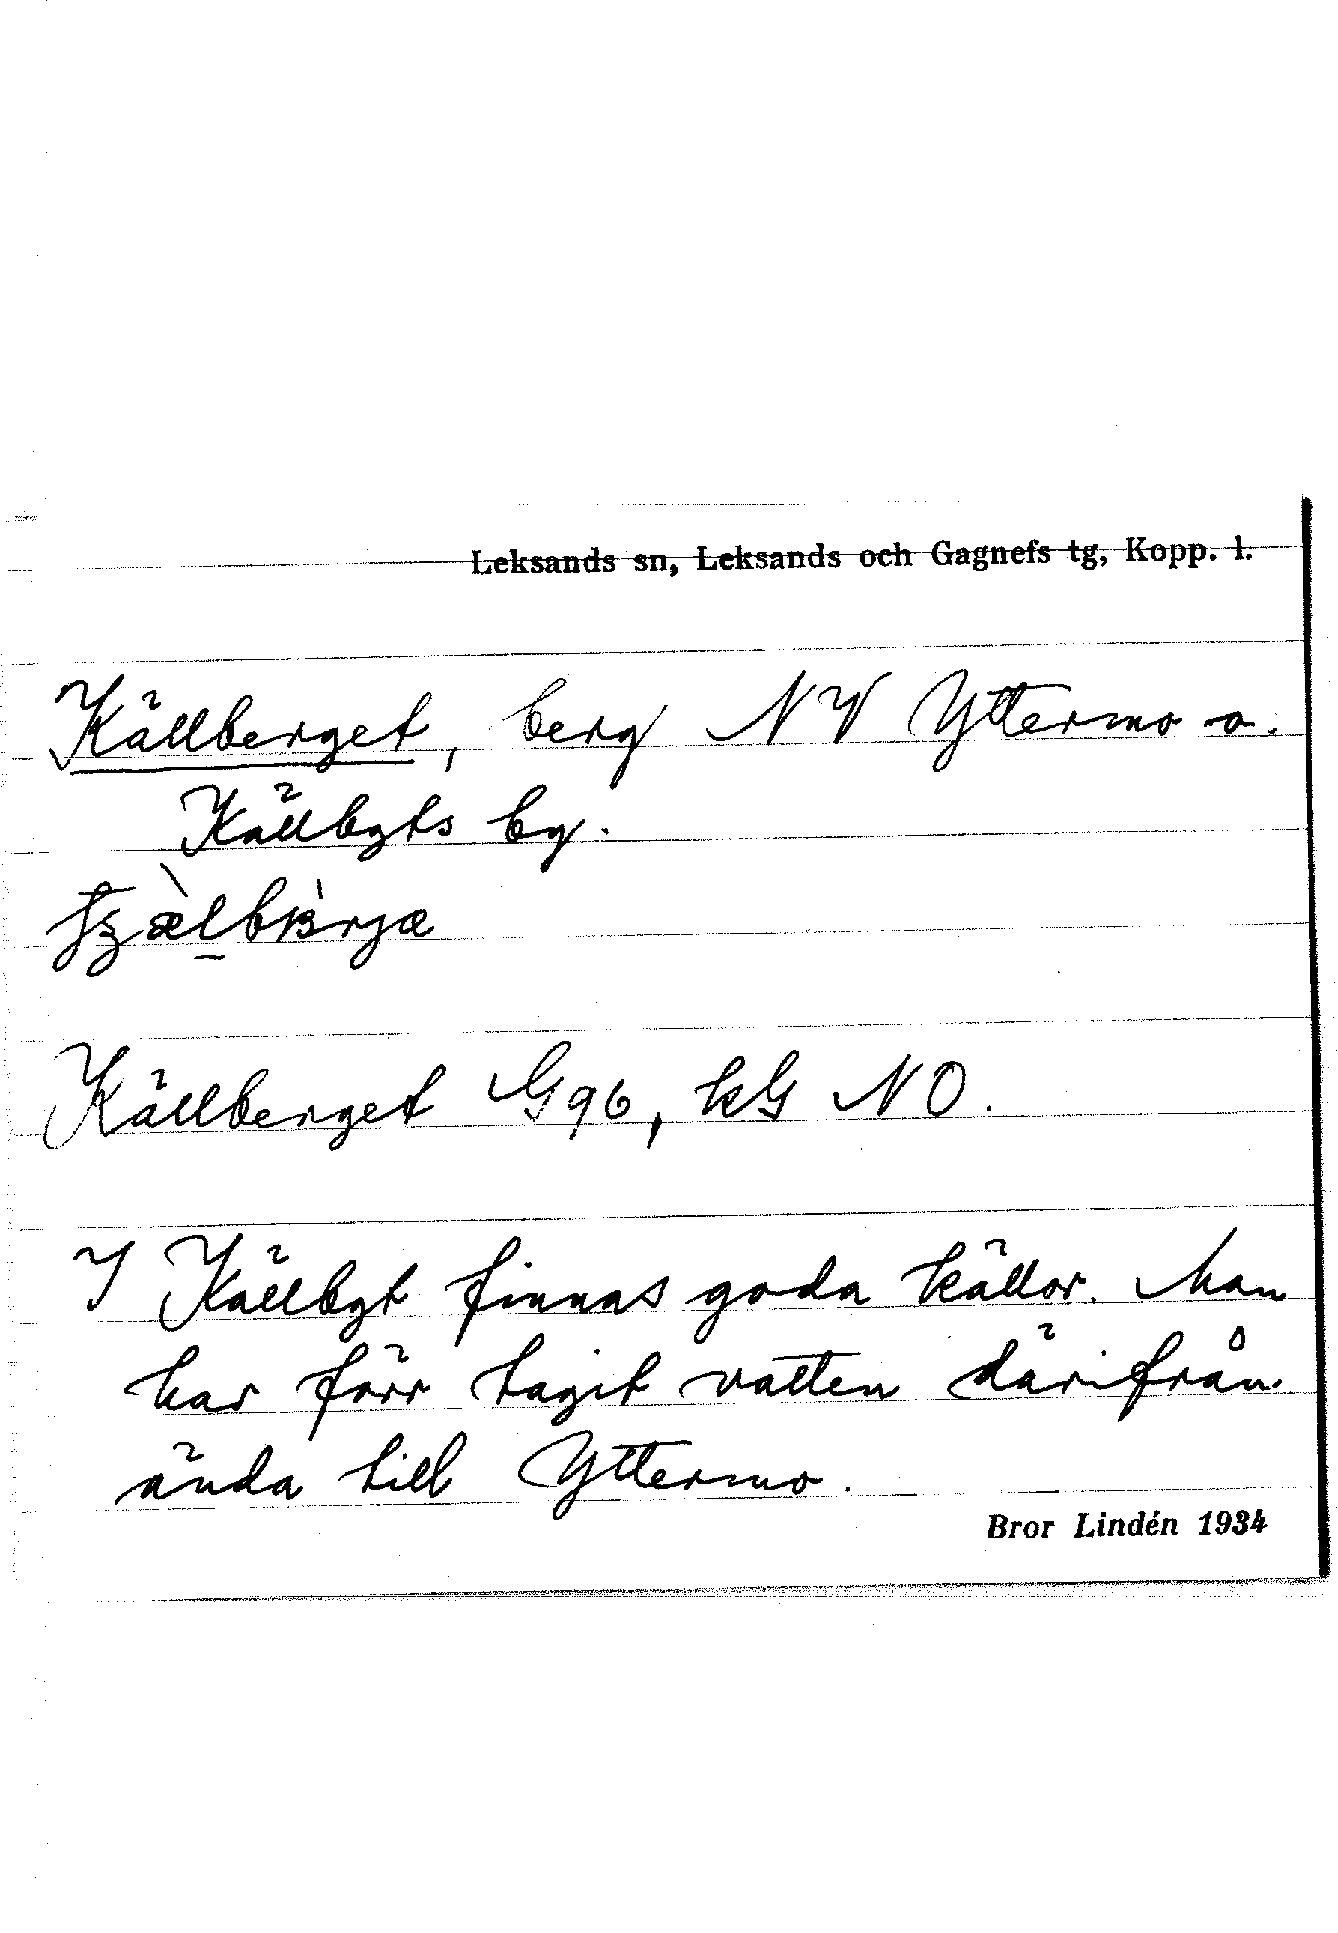 Leksands sn, Leksands och Gagnefs tg, Kopp. l.
Källberget, berg NV Yttermo o.
Källbgts by.
Källberget G96, kG NO.
I Källbgt finnas goda källor. Man
har förr tagit vatten därifrån
ända till Yttermo.
Bror Lindén 1934